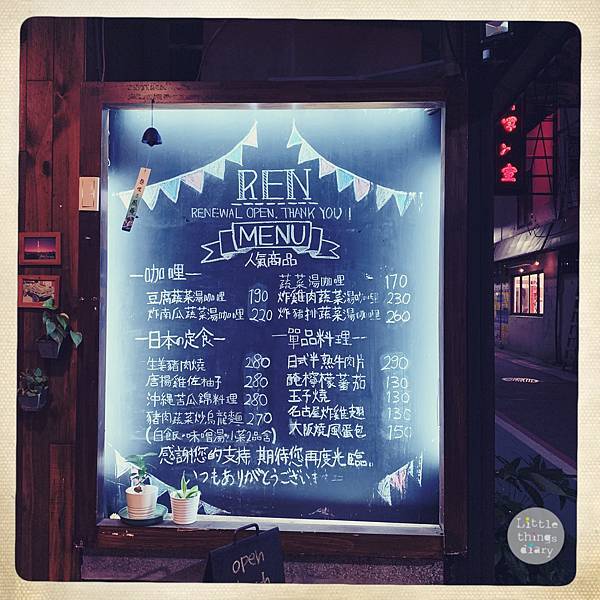 REN
RENEWAL OPEN. THANK YOU!
MENU
人氣商品
咖哩
豆腐蔬菜湯咖哩 190
炸南瓜蔬菜湯咖哩 220
蔬菜湯咖哩 170
炸雞肉蔬菜湯咖哩 230
炸豬排蔬菜湯咖哩 260
日本の定食
生姜豬肉燒 280
唐揚雞佐柚子 280
沖縄苦瓜錦料理 280
豬肉蔬菜炒烏龍麵 270
(白飯・味噌湯・小菜2品含)
單品料理
日式半熟牛肉片 290
醃檸檬蕃茄 130
玉子燒 130
名古屋炸雞翅 130
大阪燒風蛋包 150
感謝您的支持,期待您再度光臨。
いつもありがとうございます
open
Little
things
diary